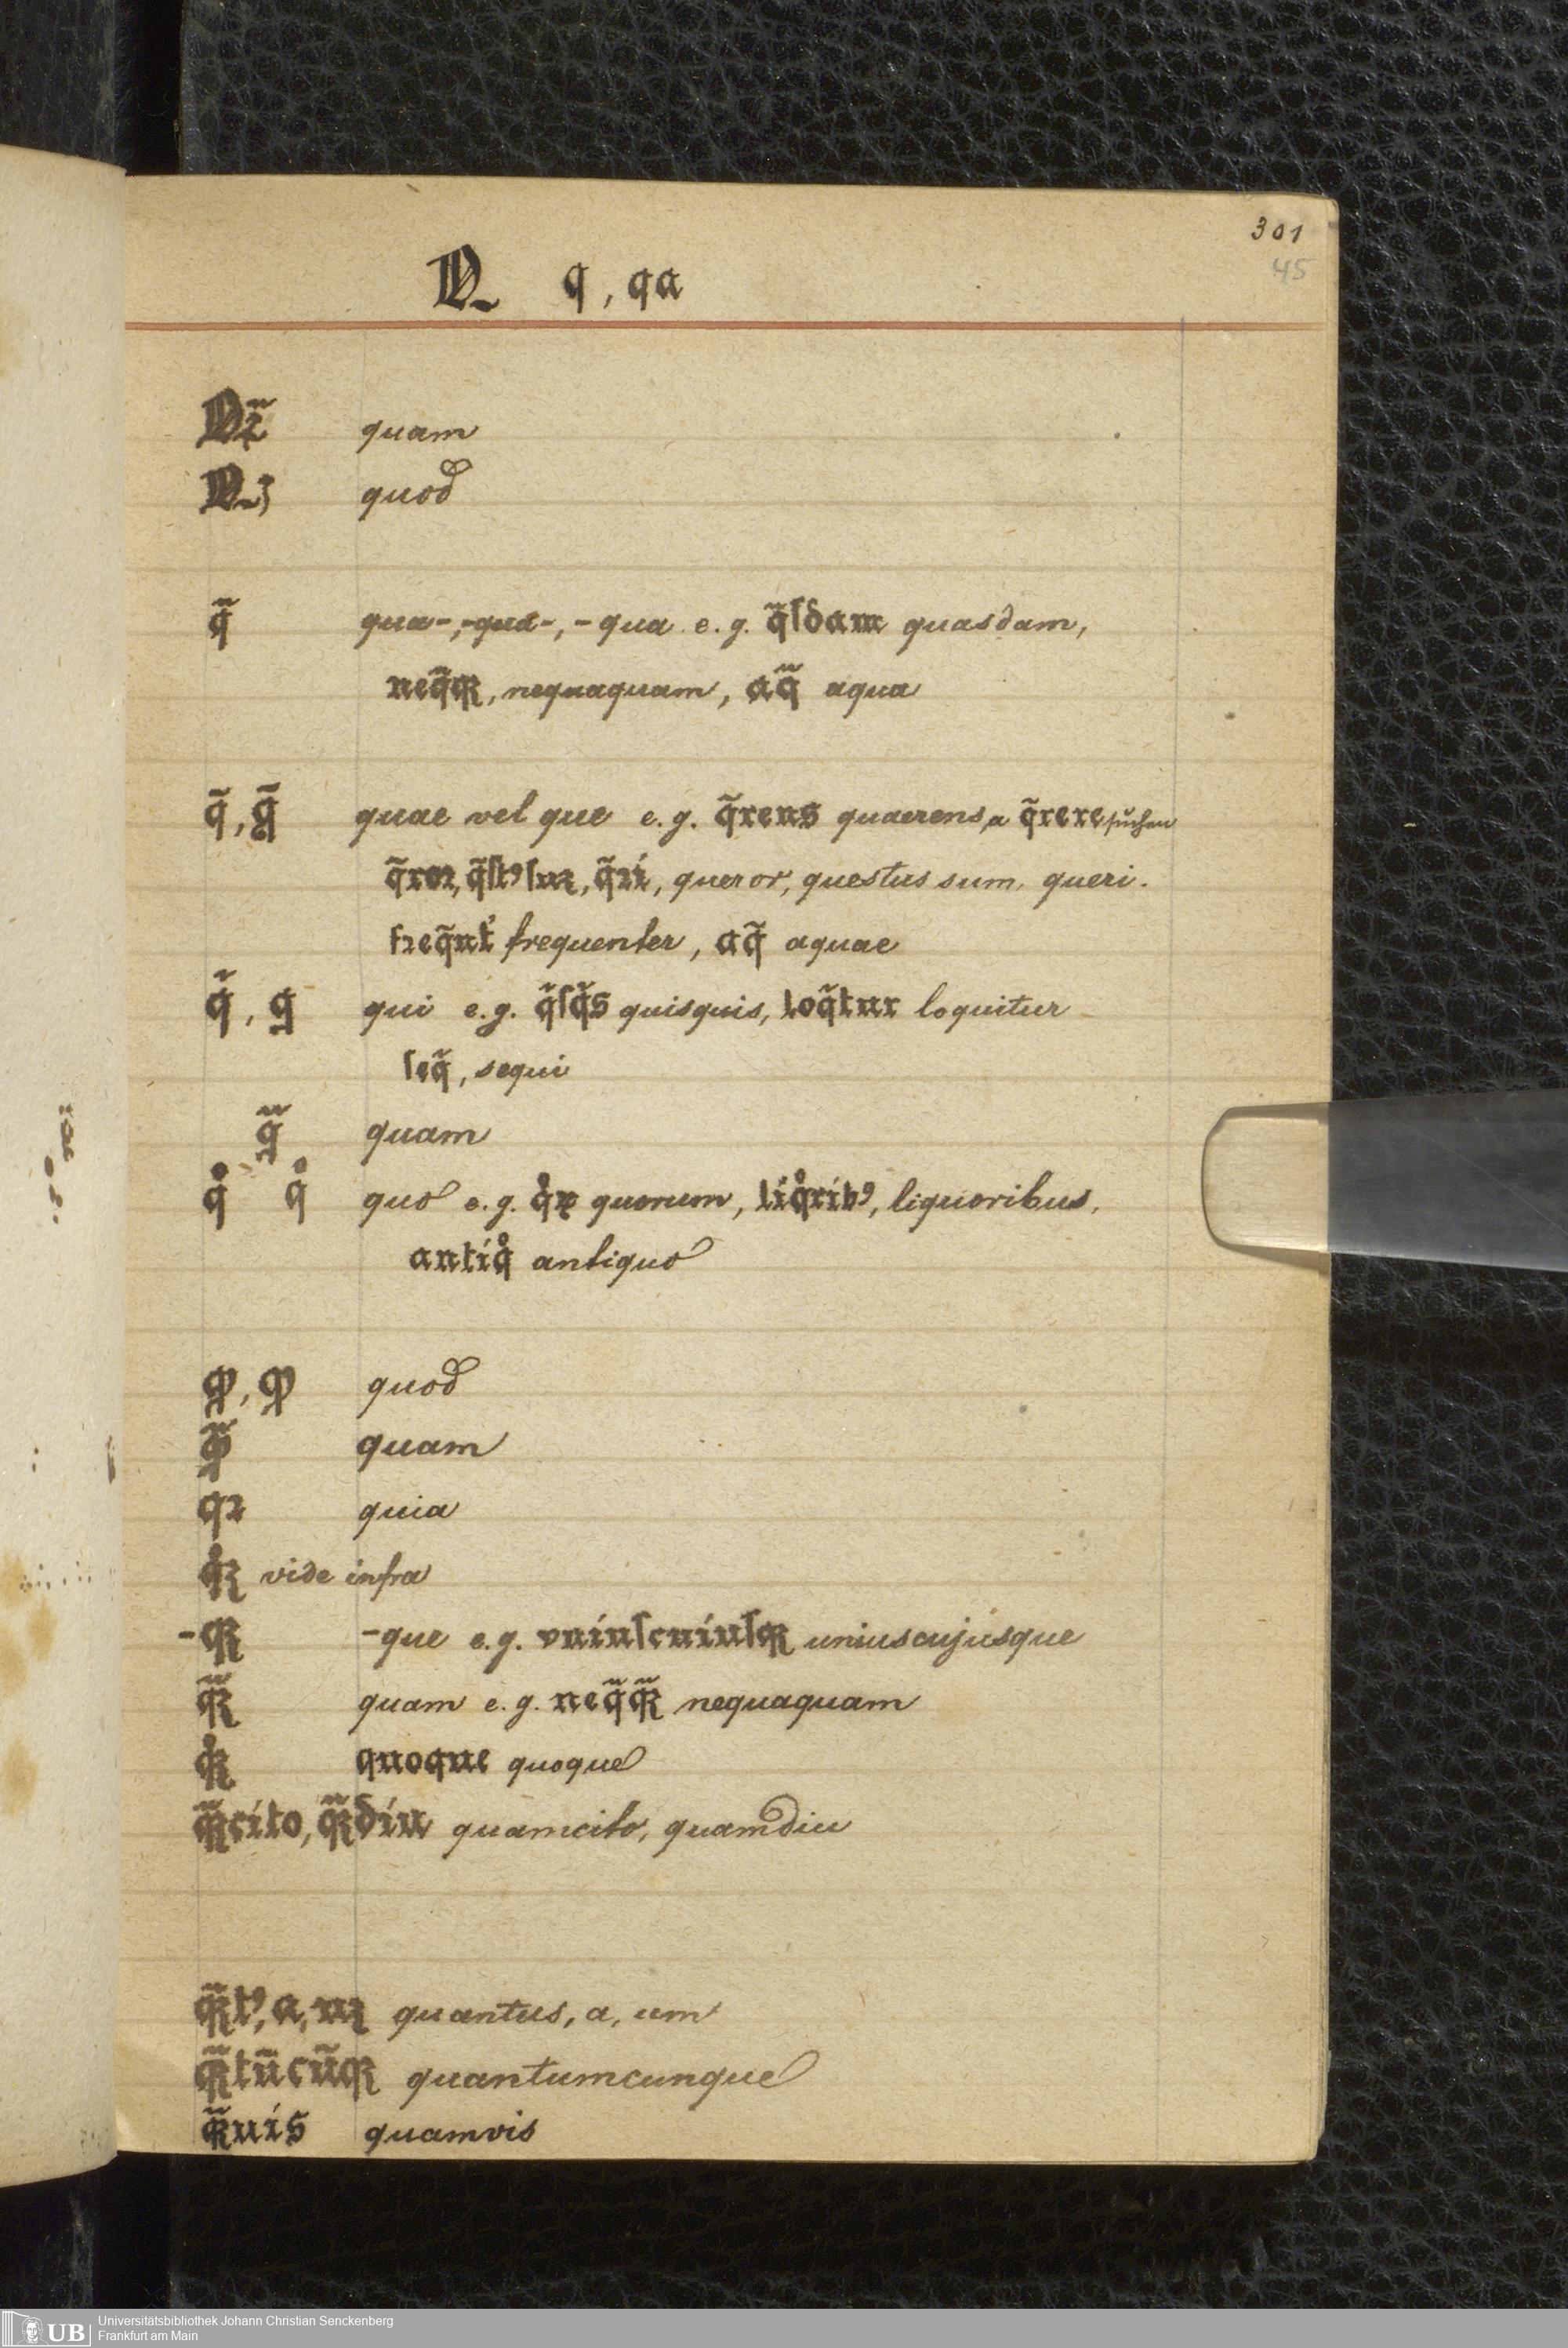 301
45
Q q, qa
quam
quod
q̃ qua-, -qua-, -qua e.g. q̃ſdam quasdam,
neq̃qꝫ, nequaquam, aq̃ aqua
q̃, quae vel que e.g. q̃rens quaerens, a q̃rere suchen
q̃ror, q̃ſtꝰ ſum, q̃ri, queror, questus sum, queri.
freq̃nt̉ frequenter, aq̃ aquae
q̃, q qui e.g. q̃ſq̃s quisquis, loq̃tur loquitur
ſeq̃, sequi
q̃ quam
q̊ q̊ quo e.g. q̊ꝝ quorum, liq̊ribꝰ, liquoribus,
antiq̊ antiquo
ꝙ, ꝙ quod
ꝙ̃ quam
qꝛ quia
q̊ꝫ vide infra
-qꝫ -que e.g. vniuſcuiuſqꝫ uniuscujusque
q̃ꝫ quam e.g. neq̃q̃ꝫ nequaquam
q̊ꝫ quoque quoque
q̃ꝫcito, q̃ꝫdiu quamcito, quamdiu
q̃ꝫtꝰ, a, um quantus, a, um
q̃ꝫtūcūqꝫ quantumcunque
q̃ꝫuis quamvis
UB
Universitätsbibliothek Johann Christian Senckenberg
Frankfurt am Main